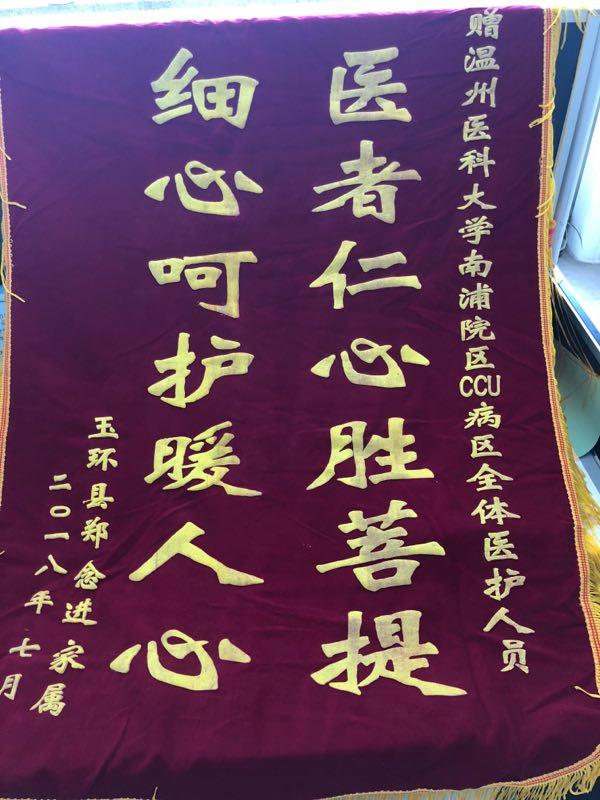 赠温州医科大学南浦院区CCU病区全体医护人员
医者仁心胜菩提
细心呵护暖人心
玉环县郑念进家属
二〇一八年七月